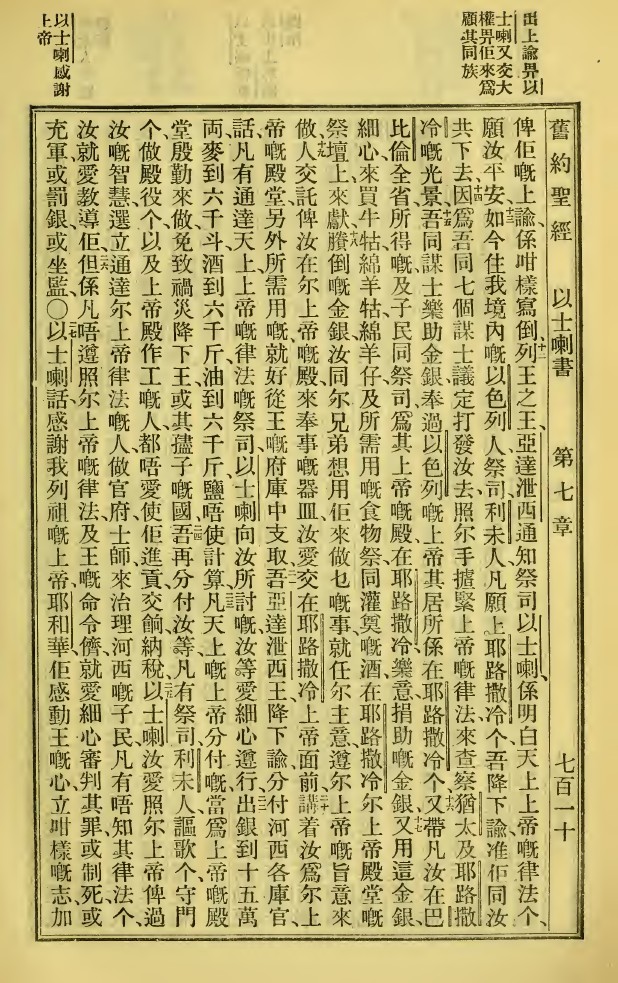 出上諭畀以
士喇又交大
權畀佢來為
顧其同族
以士喇感謝
上帝
舊約聖經 以士喇書 第七章 七百一十
俾佢嘅上諭、係咁樣寫倒、十二列王之王、亞達泄西通知祭司以士喇、係明白天上上帝嘅律法个、
十三願汝平安、如今住我境內嘅以色列人、祭司、利未人、凡願上耶路撒冷个、吾降下諭准佢同汝
共下去、十四因為吾同七個謀士議定打發汝去、照尔手攎緊上帝嘅律法、來查察猶太及耶路撒
冷嘅光景、十五吾同謀士樂助金銀、奉過以色列嘅上帝、其居所係在耶路撒冷个、十六又帶凡汝在巴
比倫全省所得嘅、及子民同祭司、為其上帝嘅殿、在耶路撒冷、樂意捐助嘅金銀、十七又用這金銀、
細心來買牛牯綿羊牯綿羊仔、及所需用嘅食物祭、同灌奠嘅酒、在耶路撒冷尔上帝殿堂嘅
祭壇上來獻、十八賸倒嘅金銀、汝同尔兄弟想用佢來做乜嘅事、就任尔主意、遵尔上帝嘅旨意來
做、十九人交託俾汝、在尔上帝嘅殿來奉事嘅器皿、汝愛交在耶路撒冷上帝面前、二十講着汝為尔上
帝嘅殿堂、另外所需用嘅、就好從王嘅府庫中支取、二一吾亞達泄西王、降下諭分付河西各庫官
話、凡有通達天上上帝嘅律法嘅祭司以士喇、向汝所討嘅、汝等愛細心遵行、二二出銀到十五萬
両、麥到六千斗、酒到六千斤、油到六千斤、鹽唔使計算、二三凡天上嘅上帝分付嘅、當為上帝嘅殿
堂、殷勤來做、免致禍災降下王或其孻子嘅國、二四吾再分付汝等、凡有祭司、利未人、謳歌个、守門
个、做殿役个、以及上帝殿作工嘅人、都唔愛使佢進貢交餉納稅、二五以士喇、汝愛照尔上帝俾過
汝嘅智慧、選立通達尔上帝律法嘅人、做官府士師、來治理河西嘅子民、凡有唔知其律法个、
汝就愛教導佢、二六但係凡唔遵照尔上帝嘅律法、及王嘅命令儕、就愛細心審判其罪、或制死、或
充軍、或罰銀、或坐監、〇二七以士喇話、感謝我列祖嘅上帝耶和華、佢感動王嘅心、立咁樣嘅志、加